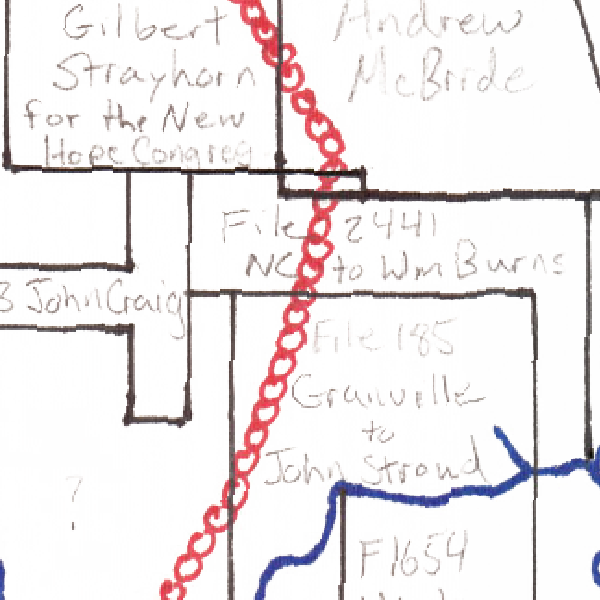 Gilbert
Strayhorn
for the New
Hope Congreg
Andrew
McBride
File 2441
NC to Wm Burns
3 John Craig
File 185
Granville
to
John Stroud
?
F1654